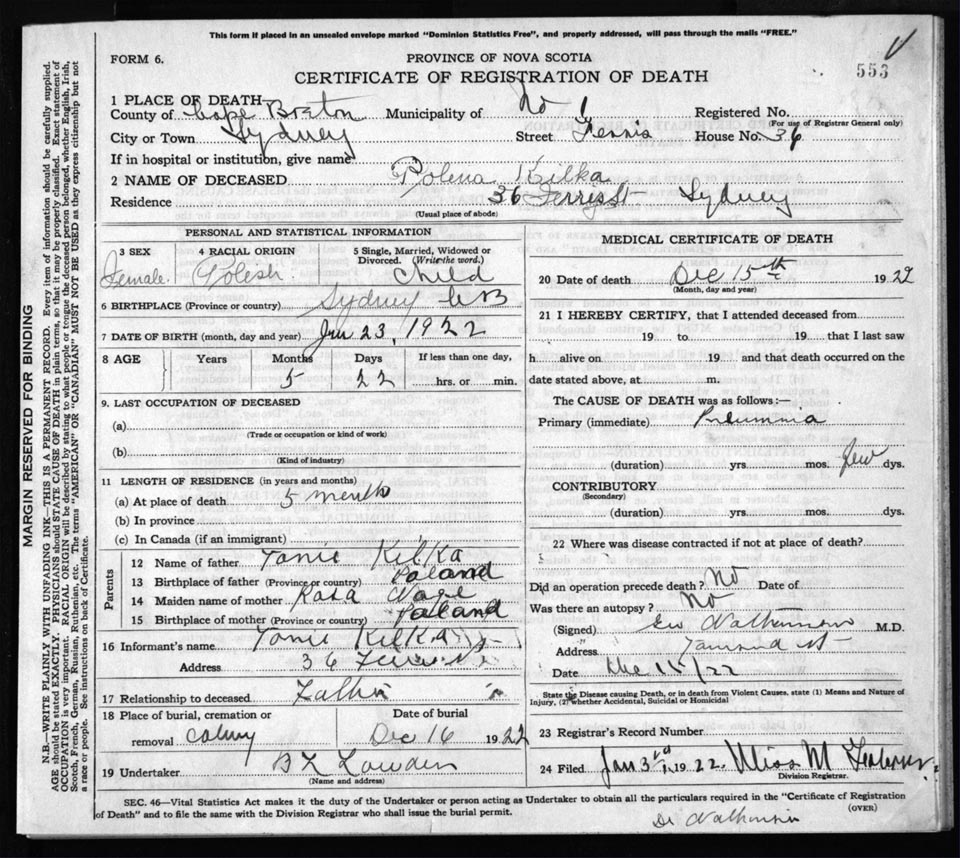 This form if placed in an unsealed envelope marked "Dominion Statistics Free", and properly addressed, will pass through the mails "FREE."
FORM 6.
PROVINCE OF NOVA SCOTIA
CERTIFICATE OF REGISTRATION OF DEATH
553
1 PLACE OF DEATH
County of Cape Breton Municipality of No 1 Registered No.
(For use of Registrar General only)
City or Town Sydney Street Ferris House No. 36
If in hospital or institution, give name
2 NAME OF DECEASED Polena Kilka
Residence 36 Ferris St Sydney
(Usual place of abode)
PERSONAL AND STATISTICAL INFORMATION
3 SEX 4 RACIAL ORIGIN 5 Single, Married, Widowed or Divorced. (Write the word.)
Female. Polesh Child
6 BIRTHPLACE (Province or country) Sydney CB
7 DATE OF BIRTH (month, day and year) 23, 1922
8 AGE Years Months Days If less than one day,
5 22 hrs. or min.
9. LAST OCCUPATION OF DECEASED
(a)
(Trade or occupation or kind of work)
(b)
(Kind of industry)
11 LENGTH OF RESIDENCE (in years and months)
(a) At place of death 5 month
(b) In province
(c) In Canada (if an immigrant)
Parents
12 Name of father Tonie Kilka
13 Birthplace of father (Province or country) Poland
14 Maiden name of mother Rosa
15 Birthplace of mother (Province or country) Poland
16 Informant's name Tonie Kilka
Address 36 Ferris St
17 Relationship to deceased Father
18 Place of burial, cremation or removal Date of burial
Dec 16 1922
19 Undertaker Lowden
(Name and address)
MEDICAL CERTIFICATE OF DEATH
20 Date of death Dec 15th 1922
(Month, day and year)
21 I HEREBY CERTIFY, that I attended deceased from
19 to 19 that I last saw
h alive on 19 and that death occurred on the
date stated above, at m.
The CAUSE OF DEATH was as follows:—
Primary (immediate) Pneumonia
(duration) yrs. mos. few dys.
CONTRIBUTORY
(Secondary)
(duration) yrs. mos. dys.
22 Where was disease contracted if not at place of death?
Did an operation precede death? No Date of
Was there an autopsy? No
(Signed) M.D.
Address
Date Dec 15/22
State the Disease causing Death, or in death from Violent Causes, state (1) Means and Nature of
Injury, (2) whether Accidental, Suicidal or Homicidal
23 Registrar's Record Number
24 Filed Jan 3rd 1922. Miss M
Division Registrar.
SEC. 46—Vital Statistics Act makes it the duty of the Undertaker or person acting as Undertaker to obtain all the particulars required in the "Certificate of Registration
of Death" and to file the same with the Division Registrar who shall issue the burial permit.
(OVER)
MARGIN RESERVED FOR BINDING
N.B.—WRITE PLAINLY WITH UNFADING INK—THIS IS A PERMANENT RECORD. Every item of information should be carefully supplied.
AGE should be stated EXACTLY. PHYSICIANS should STATE CAUSE OF DEATH in plain terms, so that it may be properly classified. Exact statement of
OCCUPATION is very important. RACIAL ORIGIN will be described by stating to what people or tongue the deceased person belonged, whether English, Irish,
Scotch, French, German, Russian, Ruthenian, etc. The terms "AMERICAN" or "CANADIAN" MUST NOT BE USED as they express citizenship but not
a race or people. See instructions on back of Certificate.